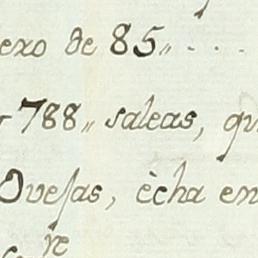 exo de 85,, . . .
788,, saleas, qu
Ovejas,ècha en